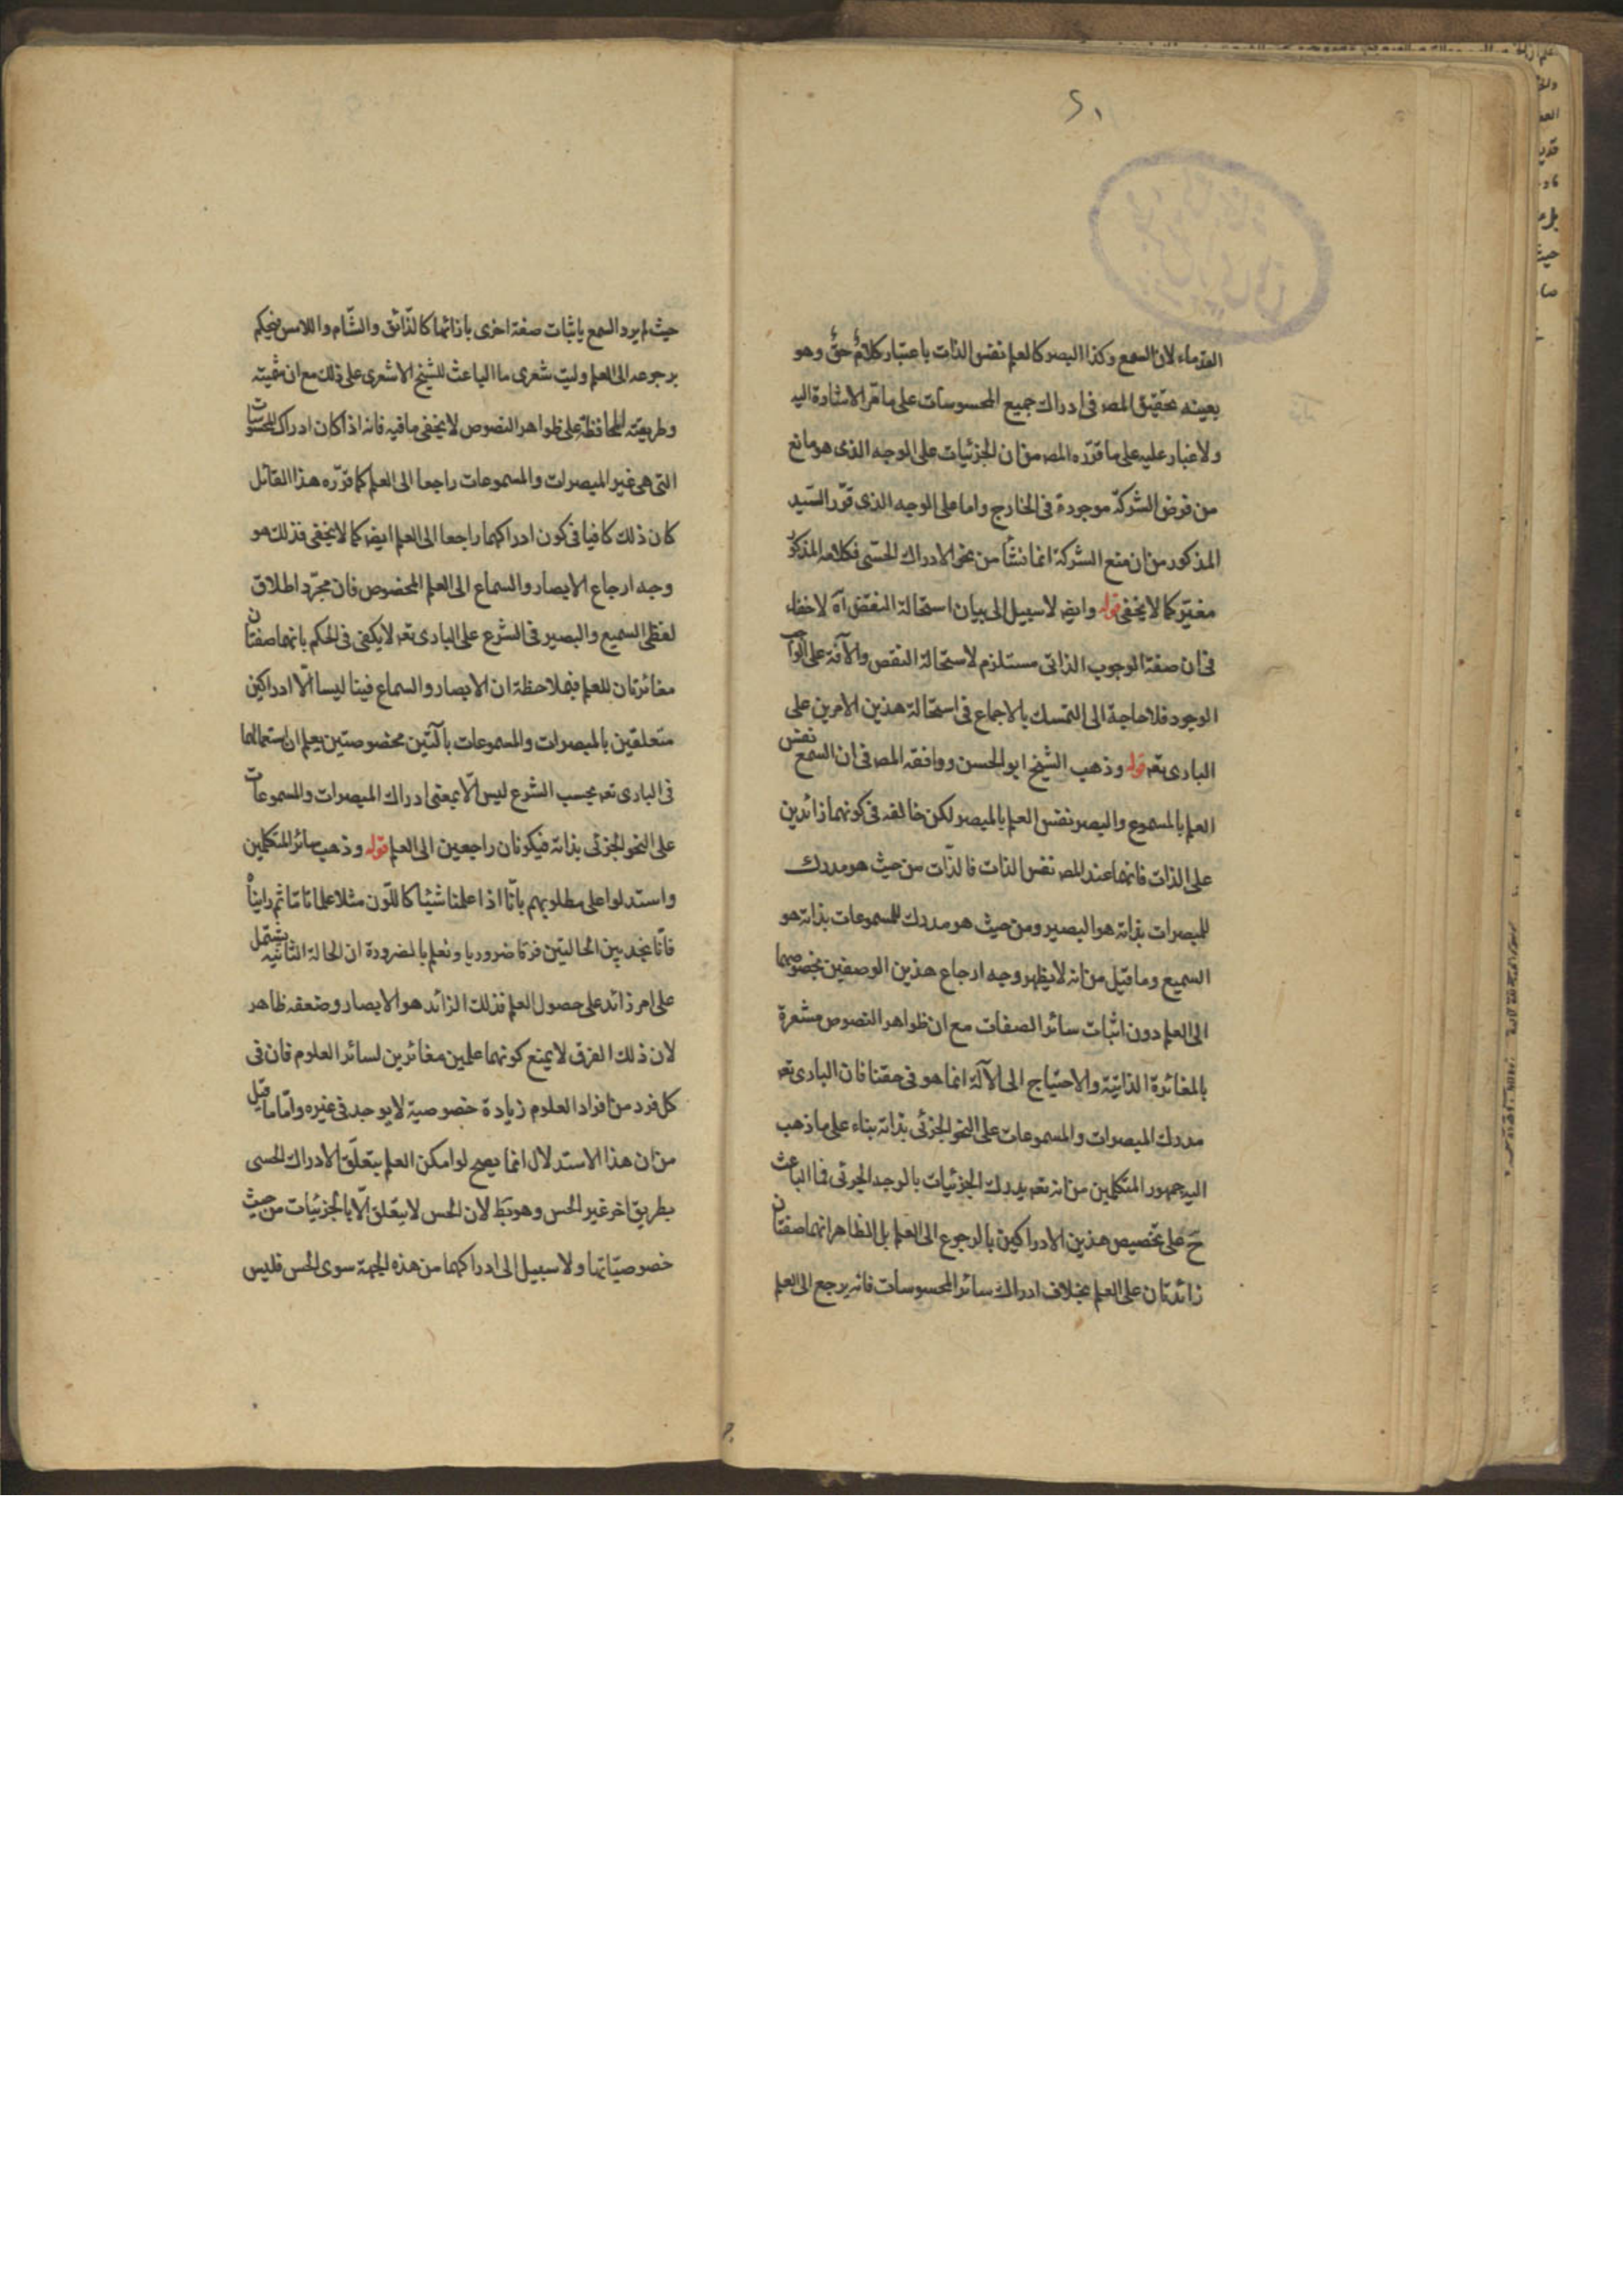 ٢١
القدماء لان السمع وكذا البصر كالعلم نفس الذات باعتبار كلامٌ حقٌ وهو
بعينه تحقيق المص فى ادراك جميع المحسوسات على ما مّر الاشارة اليه
ولا غبار عليه على ما قرّره المص من ان الجزئيات على الوجه الذى هو مانع
من فرض الشركة موجودة فى الخارج واما على الوجه الذى قرّر السّيد
المذكور من ان منع الشركة انما نشأ من نحو الادراك الحسّى فكلامه المذكور
مغيّر كما لا يخفى قوله وايضا لا سبيل الى بيان استحالة النقص آه لا خفاء
فى ان صفة الوجوب الذاتى مستلزم لاستحالة النقص والآفة على الواجب
الوجود فلا حاجة الى التمسك بالاجماع فى استحالة هذين الامرين على
البارى تعه قوله وذهب الشيخ ابو الحسن ووافقه المص فى ان السمع نفس
العلم بالمسموع والبصر نفس العلم بالمبصر لكن خالفه فى كونهما زائدين
على الذات فانهما عند المص نفس الذات فالذّات من حيث هو مدرك
للمبصرات بذاته هو البصير ومن حيث هو مدرك للمسموعات بذاته هو
السميع وما قيل من انه لا يظهر وجه ارجاع هذين الوصفين بخصوصهما
الى العلم دون اثبات سائر الصفات مع ان ظواهر النصوص مشعرة
بالمغائرة الذاتيّة والاحتياج الى الآلة انما هو فى حقنا فان البارى تعه
مدرك المبصرات والمسموعات على النحو الجزئى بذاته بناء على ما ذهب
اليه جمهور المتكلمين من انه تعه يدرك الجزئيات بالوجه الجزئى فما الباعث
حَ على تخصيص هذين الادراكين بالرجوع الى العلم بل الظاهر انهما صفتان
زائدتان على العلم بخلاف ادراك سائر المحسوسات فانه يرجع الى العلم
حيث لم يرد السمع باثبات صفة اخرى بازائها كالذّائق والشّام واللامس فيحكم
برجوعه الى العلم وليت شعرى ما الباعث للشيخ الاشعرى على ذلك مع ان
وطريقته المحافظة على ظواهر النصوص لا يخفى ما فيه فانه اذا كان ادراك المحسوسات
التى هى غير المبصرات والمسموعات راجعا الى العلم كما قرّره هذا القائل
كان ذلك كافيا فى كون ادراكهما راجعا الى العلم ايضا كما لا يخفى فذلك هو
وجه ارجاع الابصار والسماع الى العلم المخصوص فان مجرّد اطلاق
لفظى السميع والبصير فى الشرع على البارى تعه لا يكفى فى الحكم بانهما صفتان
مغائرتان للعلم فبملاحظة ان الابصار والسماع فينا ليسا الّا ادراكين
متعلقين بالمبصرات والمسموعات بآلتين مخصوصتين يعلم ان استعمالهما
فى البارى تعه بحسب الشرع ليس الّا بمعنى ادراك المبصرات والمسموعات
على النحو الجزئى بذاته فيكونان راجعين الى العلم قوله وذهب سائر المتكلمين
واستدلوا على مطلوبهم بانّا اذا علمنا شيئا كاللّون مثلا علما تامّا ثم رايناه
فانّا نجد بين الحالتين فرقا ضروريا ونعلم بالضرورة ان الحالة الثانية يشتمل
على امر زائد على حصول العلم فذلك الزائد هو الابصار وضعفه ظاهر
لان ذلك الفرق لا يمنع كونهما علمين مغائرين لسائر العلوم فان فى
كل فرد من افراد العلوم زيادة خصوصية لا يوجد فى غيره وامّا ما قيل
من ان هذا الاستدلال انما يصح لو امكن العلم بمتعلّق الادراك الحسى
بطريق اخر غير الحس وهو بَط لان الحس لا يتعّلق الّا بالجزئيات من حيث
خصوصيّاتها ولا سبيل الى ادراكهما من هذه الجهة سوى الحس فليس